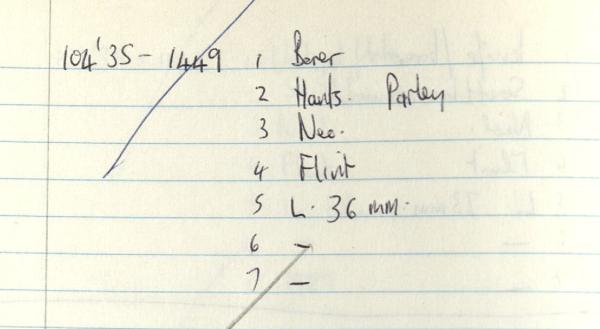 104'35 - 1449 1 Borer
2 Hants. Parley
3 Neo.
4 Flint
5 L. 36 mm.
6 —
7 —